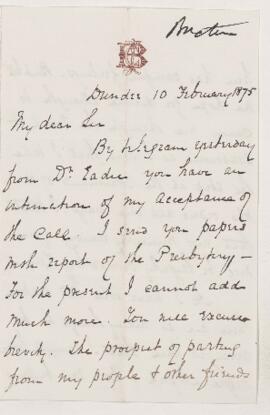 Dundee 10 February 1875
My dear Sir
By telegram yesterday
from Dr. Eadie you have an
intimation of my acceptance of
the Call. I send you papers
with report of the Presbytery —
For the present I cannot add
much more. You will excuse
brevity. The prospect of parting
from my people & other friends